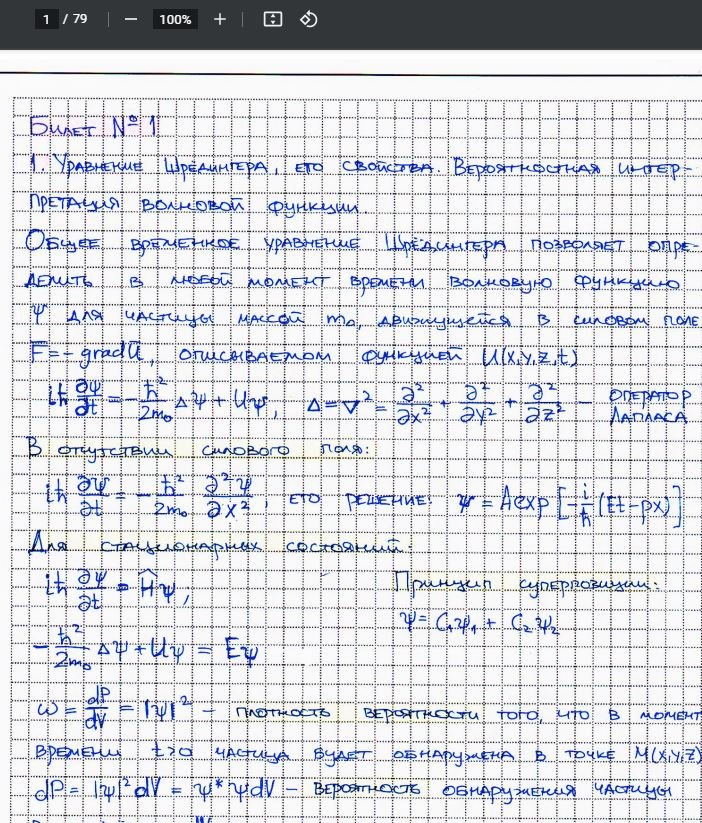 1 / 79 100%
Билет № 1
1. Уравнение Шрёдингера, его свойства. Вероятностная интер-
претация волновой функции.
Общее временное уравнение Шрёдингера позволяет опре-
делить в любой момент времени волновую функцию
ψ для частицы массой m₀, движущейся в силовом поле
F̄ = - grad U, описываемом функцией U(x,y,z,t)
iħ ∂ψ/∂t = - ħ²/2m₀ Δψ + Uψ, Δ = ∇² = ∂²/∂x² + ∂²/∂y² + ∂²/∂z² - оператор Лапласа
В отсутствии силового поля:
iħ ∂ψ/∂t = - ħ²/2m₀ ∂²ψ/∂x², его решение: ψ = A exp [-i/ħ (Et - px)]
Для стационарных состояний:
iħ ∂ψ/∂t = Ĥψ, Принцип суперпозиции:
ψ = C₁ψ₁ + C₂ψ₂
- ħ²/2m₀ Δψ + Uψ = Eψ
ω = dP/dV = |ψ|² - плотность вероятности того, что в момент
времени t>0 частица будет обнаружена в точке M(x,y,z)
dP = |ψ|² dV = ψ* ψ dV - вероятность обнаружения частицы